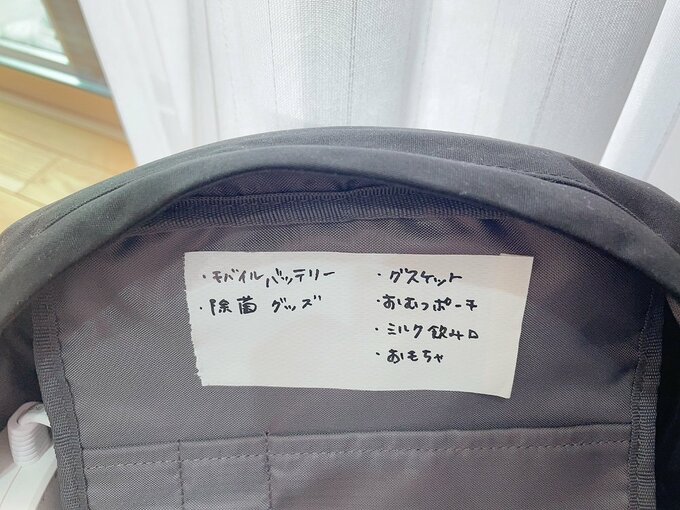 ・モバイルバッテリー
・除菌グッズ
・グスケット
・おむつポーチ
・ミルク飲み口
・おもちゃ